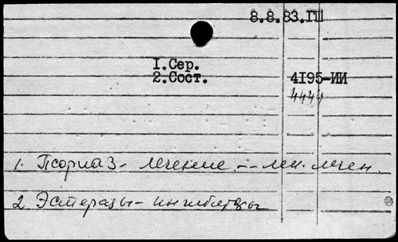 8.8.83.ГШ
1.Сер.
2.Сост.
4195-ИИ
4444
1. Псориаз - лечение - лек. лечен.
2. Эстеразы - ингибиторы